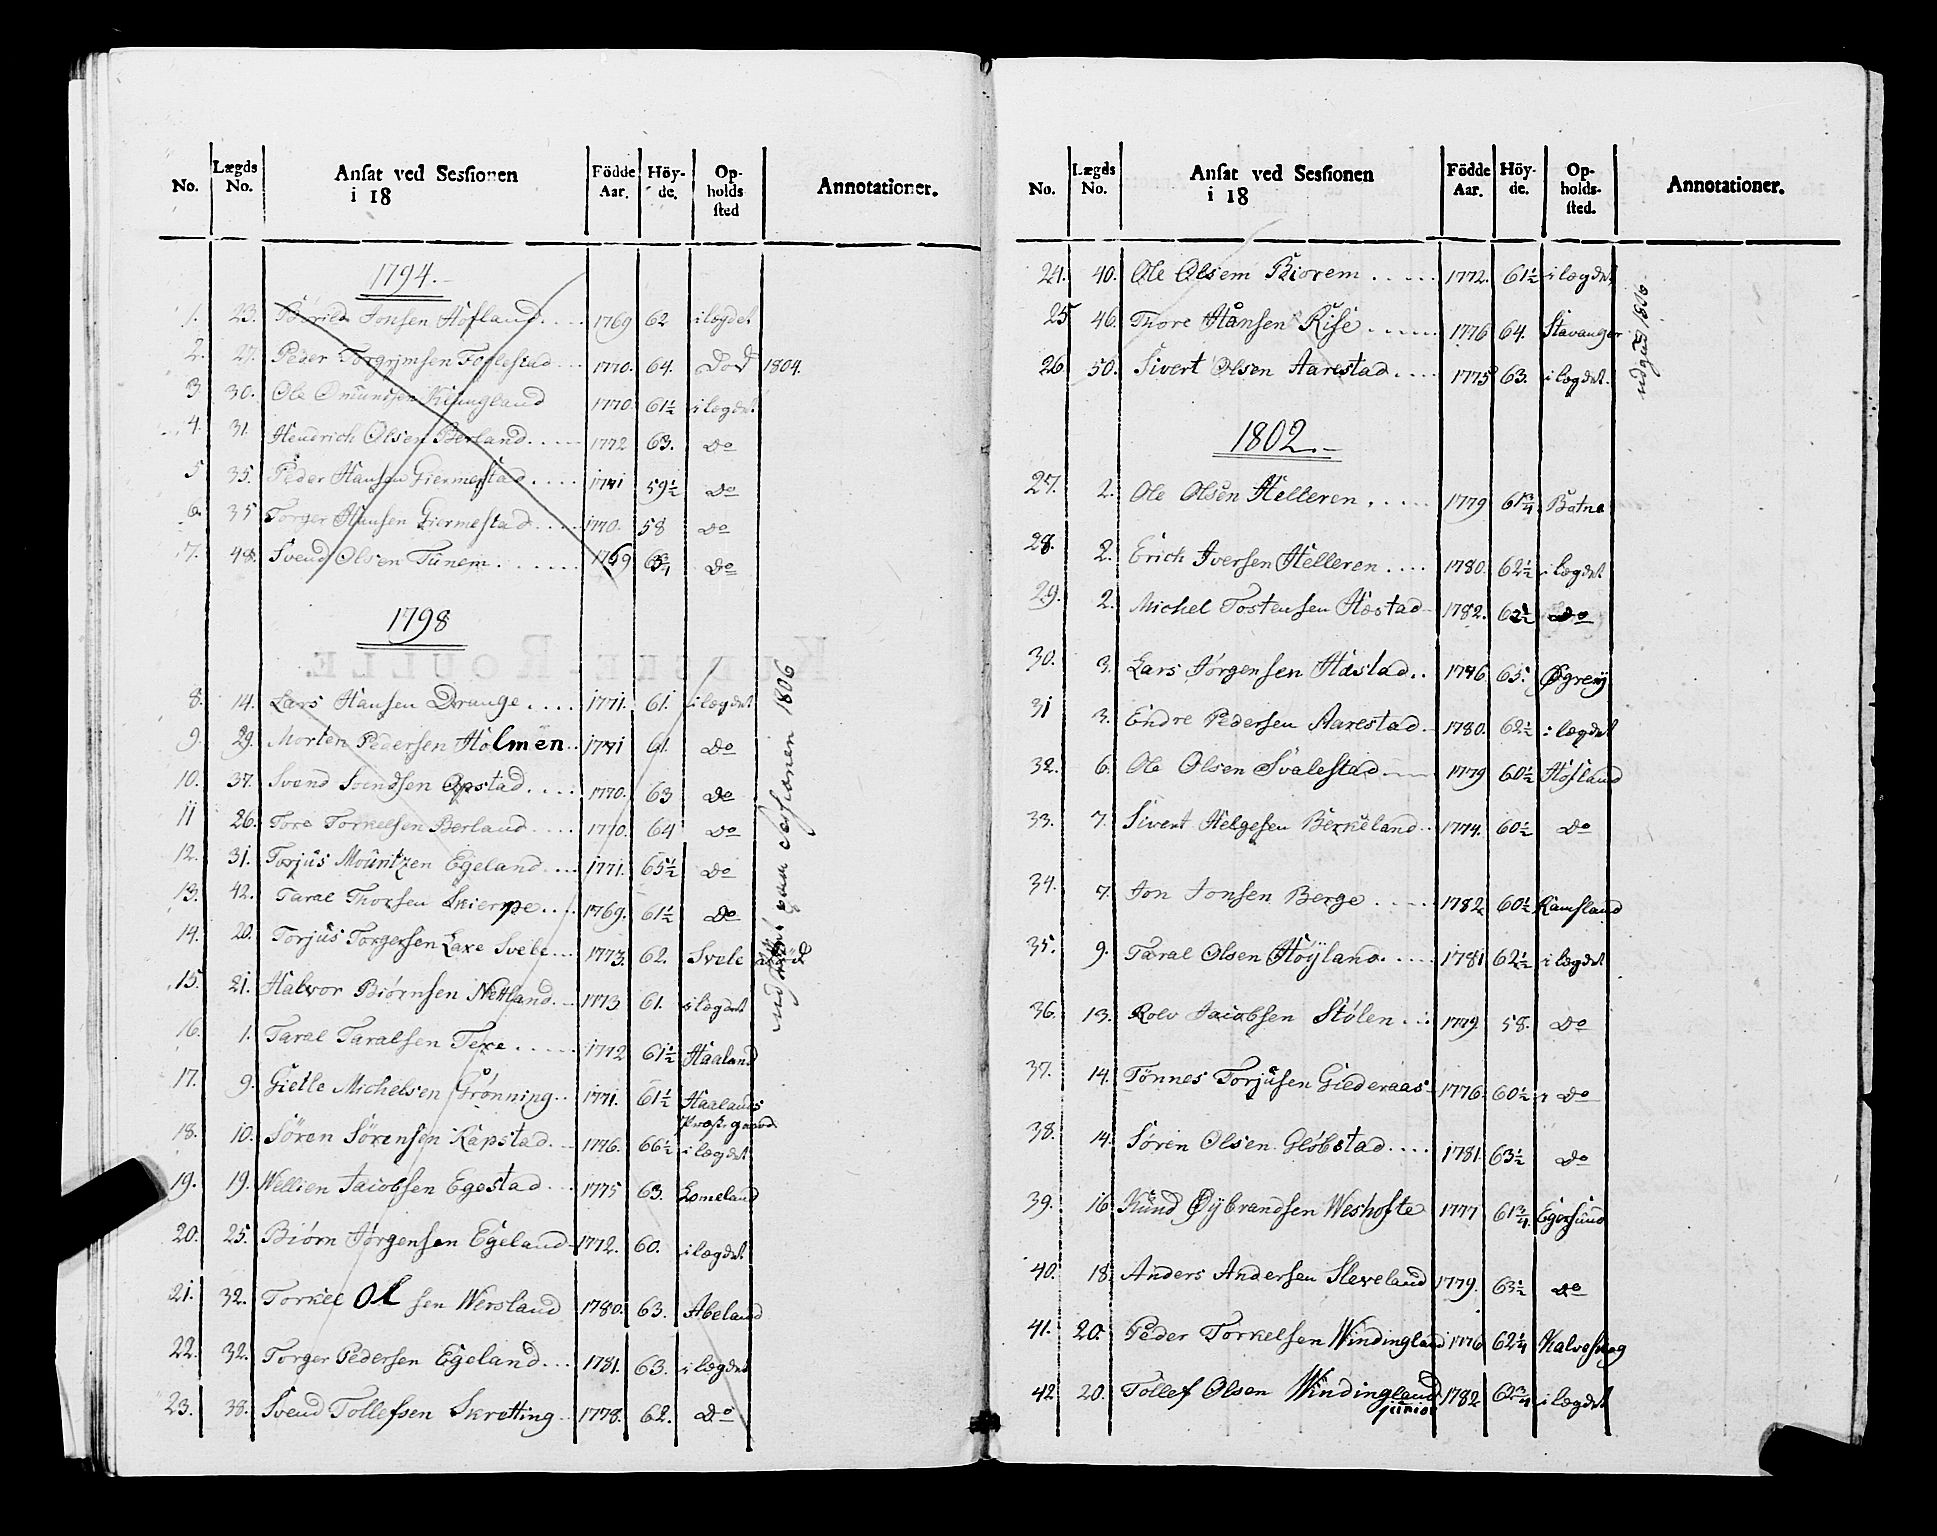 No. Lægds No. Ansat ved Sessionen i 18 Födde Aar. Höy-de. Op-holds sted Annotationer.
1794.
1. 23. Jonsen Hofland 1769 62 i lægdet
2. 27. Peder Torgrjmsen Foglestad 1770. 64. Død 1804.
3 30. Ole Omundsen Klungland 1770. 61½ i lægdet
4. 31. Hendrich Olsen Berland 1772 63. Do
5 35. Peder Hansen Giermestad 1771 59½ Do
6. 35 Torger Hansen Giermestad 1770. 58 Do
7. 48. Svend Olsen Tunem 1769 63¾ Do
1798
8. 14. Lars Hansen Drange 1771. 61. i lægdet
9. 29. Morten Pedersen Holmen 1771 61. Do
10. 37. Svend Svendsen Opstad 1770. 63 Do
11 26. Tore Torkelsen Berland 1770. 64 Do
12. 31. Torjus Mouritzen Egeland 1771. 65½ Do
13. 42. Taral Thorsen Skierpe 1769. 61½ Do
14. 20. Torjus Torgersen Laxe Svele 1773. 62. Svele
15. 21. Halvor Biørnsen Nettland 1773 61. i lægdet
16. 1. Taral Taralsen Texe 1772 61½ Haaland
17. 9. Gietle Michelsen Grønning 1771. 61½ Haalands Præste gaard
18. 10. Sören Sörensen Kapstad 1776. 66½ i lægdet
19. 19. Wellien Jacobsen Egestad 1775 63. Lomeland
20. 25. Biørn Jørgensen Egeland 1772. 60. i lægdet
21. 32. Torkel Olsen Wersland 1780. 63. Abeland
22. 32. Torger Pedersen Egeland 1781. 63. i lægdet
23. 38. Svend Tollefsen Skretting 1778. 62. Do
sessionen 1806
No. Lægds No. Ansat ved Sessionen i 18 Födde Aar. Höy-de. Op-holds-sted. Annotationer.
24. 40. Ole Olsem Biorem 1772. 61½ i lægdet
25 46. Thore Hansen Rise 1776 64. Stavanger
26 50. Sivert Olsen Aarestad 1775 63. i lægdet.
udgud 1806
1802.
27. 2. Ole Olsen Helleren 1779 61¾ Batne
28. 2. Erich Iversen Helleren 1780. 62½ i lægdet
29. 2. Michel Tostensen Hæstad 1782. 62½ Do
30. 3. Lars Jørgensen Hæstad 1776 65. Øgreij
31 3. Endre Pedersen Aarestad 1780. 62½ i lægdet
32. 6. Ole Olsen Svalestad 1779 60½ Hofland
33. 7. Sivert Helgesen Berkeland 1774. 60½ Do
34. 7. Jon Jonsen Berge 1782 60½ Ramsland
35. 9. Taral Olsen Høÿland 1781 62½ i lægdet
36. 13. Rolv Jacobsen Stølen 1779 58. Do
37. 14. Tönnes Torjusen Giederaas 1776. 60½ Do
38. 14. Søren Olsen Gløbstad 1781. 63½ Do
39. 16 Knud Øÿbrandsen Weshofte 1777 61¾ Egersund
40. 18. Anders Andersen Sleveland 1779. 63½ Do
41. 20. Peder Torkelsen Windingland 1776 62¼ Kalveskog
42 20. Tollef Olsen Windingland junior 1782 62¾ i lægdet